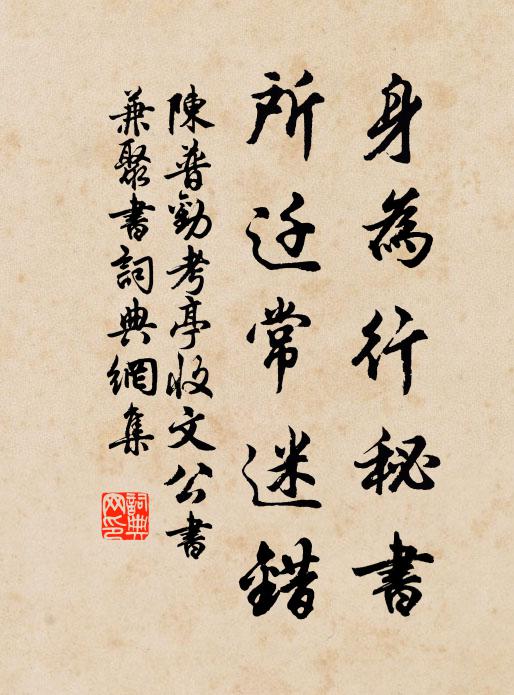 身為行秘書
所迂常迷錯
陳普勸考亭收文公書
兼聚書詞典網集
詞典
网印